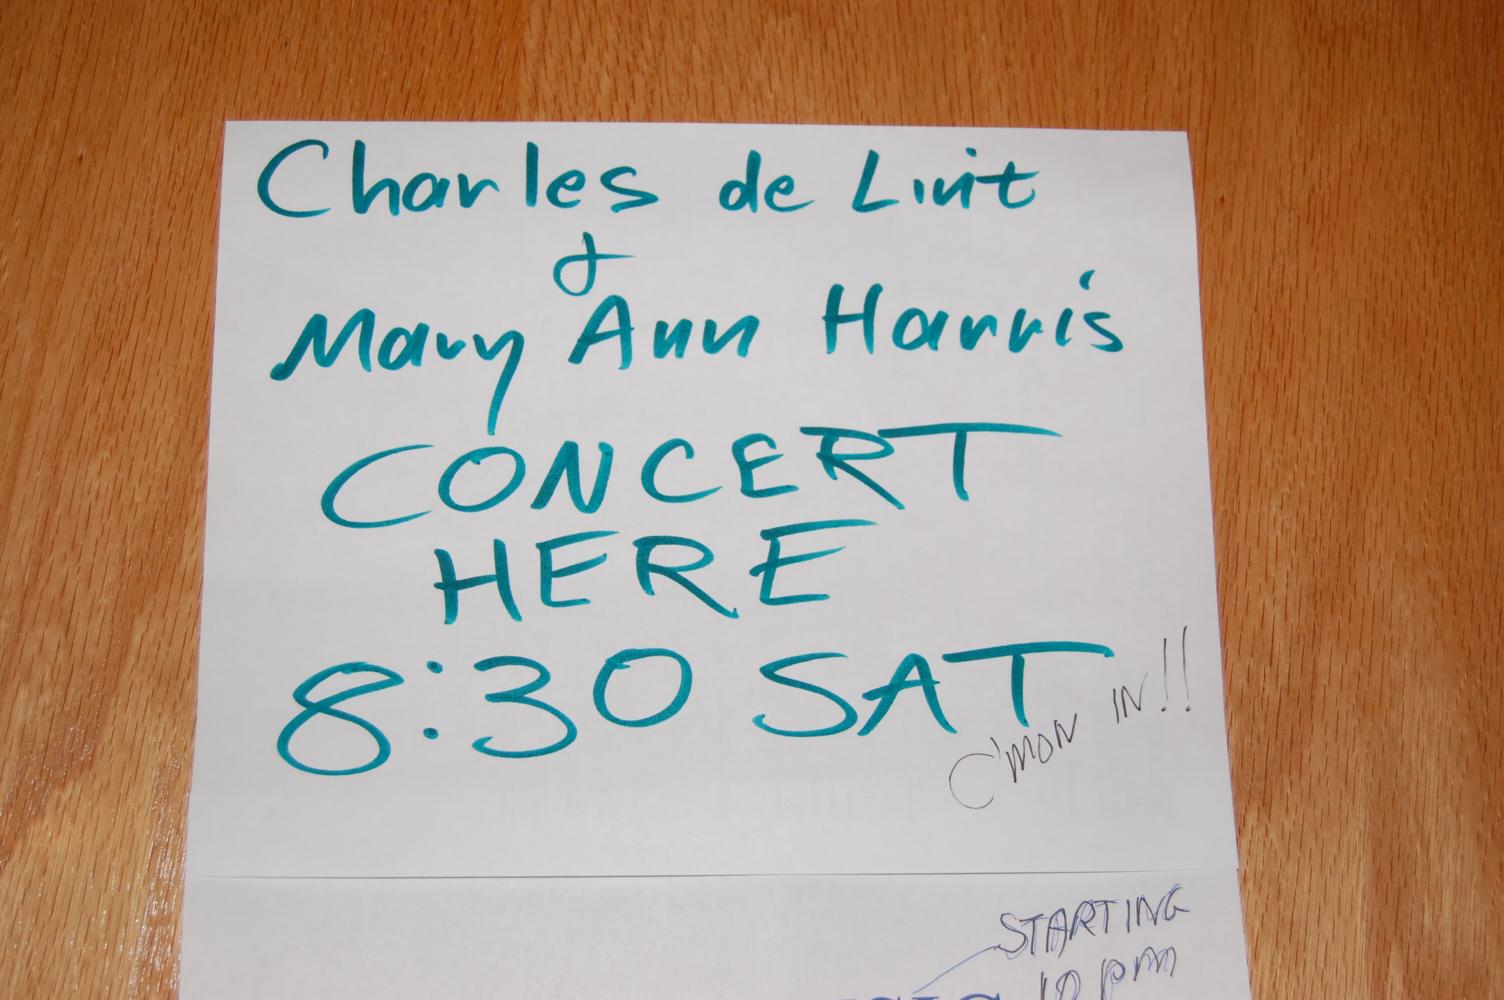 Charles de Lint
&
Mary Ann Harris
CONCERT
HERE
8:30 SAT
C'MON IN!!
STARTING
10 pm